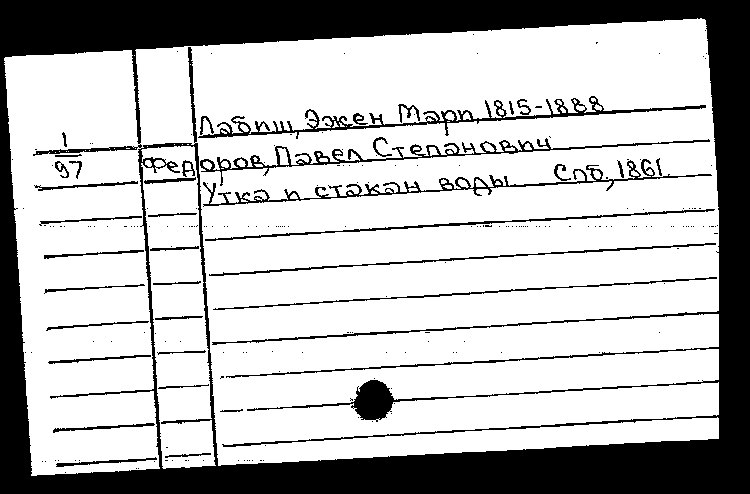 Лабиш, Эжен Мари, 1815-1888
1
97 Федоров, Павел Степанович
Утка и стакан воды Спб, 1861